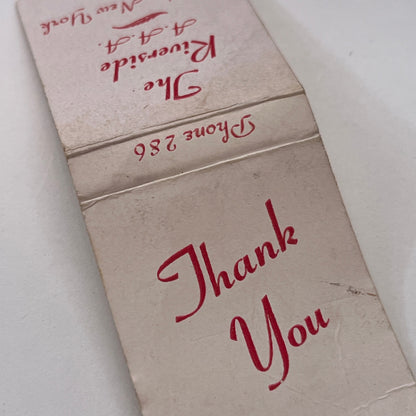 The
Riverside
A.A.A.
New York
Phone 286
Thank
You